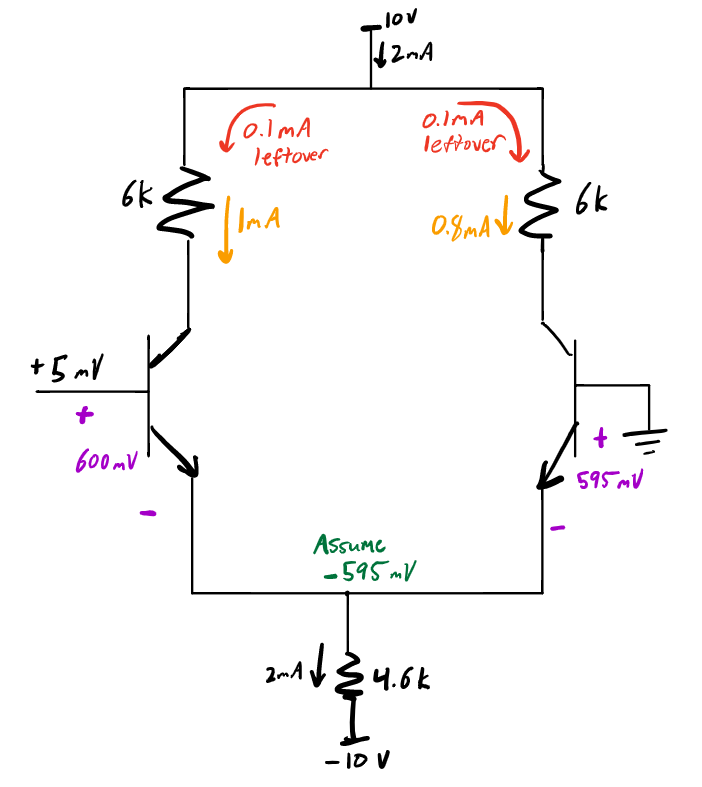 10V
2mA
0.1mA
leftover
0.1mA
leftover
6k
1mA
0.8mA
6k
+5mV
+
600mV
-
+
595mV
-
Assume
-595mV
2mA
4.6k
-10V